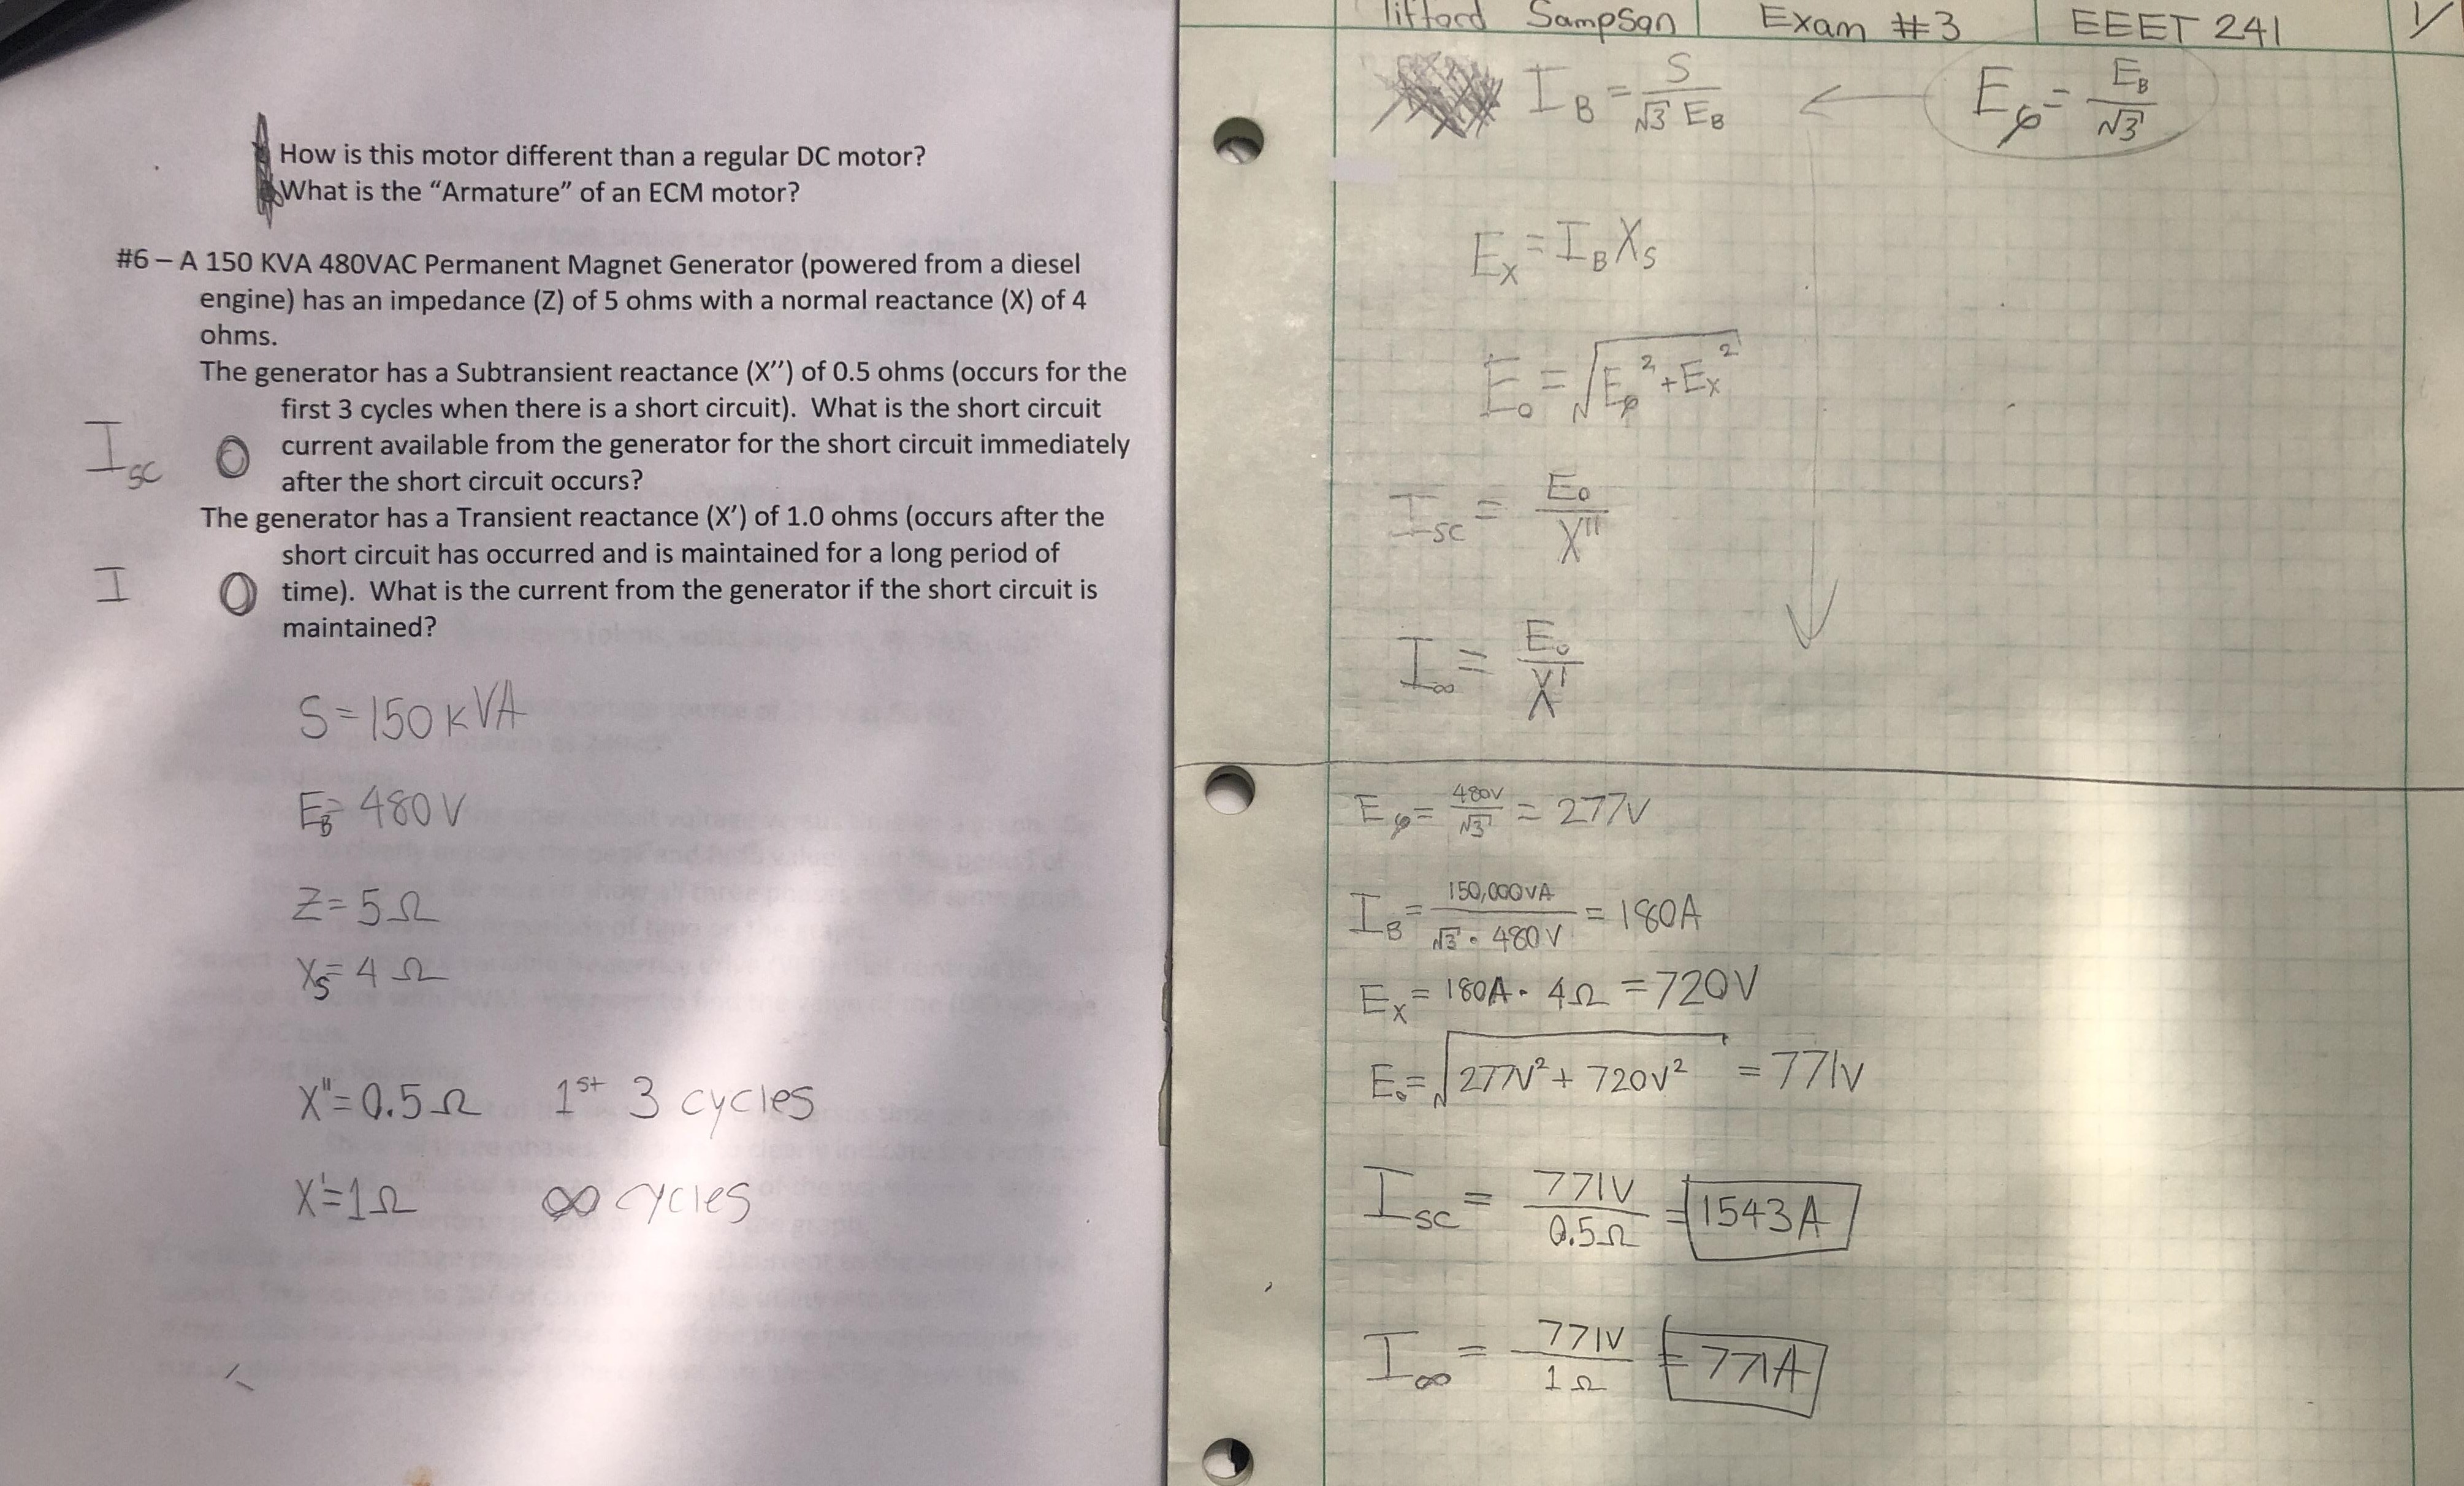 How is this motor different than a regular DC motor?
What is the “Armature” of an ECM motor?
#6 – A 150 KVA 480VAC Permanent Magnet Generator (powered from a diesel
engine) has an impedance (Z) of 5 ohms with a normal reactance (X) of 4
ohms.
The generator has a Subtransient reactance (X’’) of 0.5 ohms (occurs for the
first 3 cycles when there is a short circuit). What is the short circuit
current available from the generator for the short circuit immediately
after the short circuit occurs?
I_SC
The generator has a Transient reactance (X’) of 1.0 ohms (occurs after the
short circuit has occurred and is maintained for a long period of
time). What is the current from the generator if the short circuit is
maintained?
I
S = 150 kVA
E_B = 480 V
Z = 5 Ω
X_S = 4 Ω
X" = 0.5 Ω 1st 3 cycles
X' = 1 Ω ∞ cycles
Sampson Exam #3 EEET 241 1/
I_B = S / √3 E_B ← E_φ = E_B / √3
E_X = I_B X_S
E_o = √(E_φ² + E_X²)
I_SC = E_o / X"
I_∞ = E_o / X'
E_φ = 480V / √3 = 277V
I_B = 150,000VA / √3 · 480V = 180A
E_X = 180A · 4Ω = 720V
E_o = √(277V² + 720V²) = 771V
I_SC = 771V / 0.5Ω = 1543A
I_∞ = 771V / 1Ω = 771A